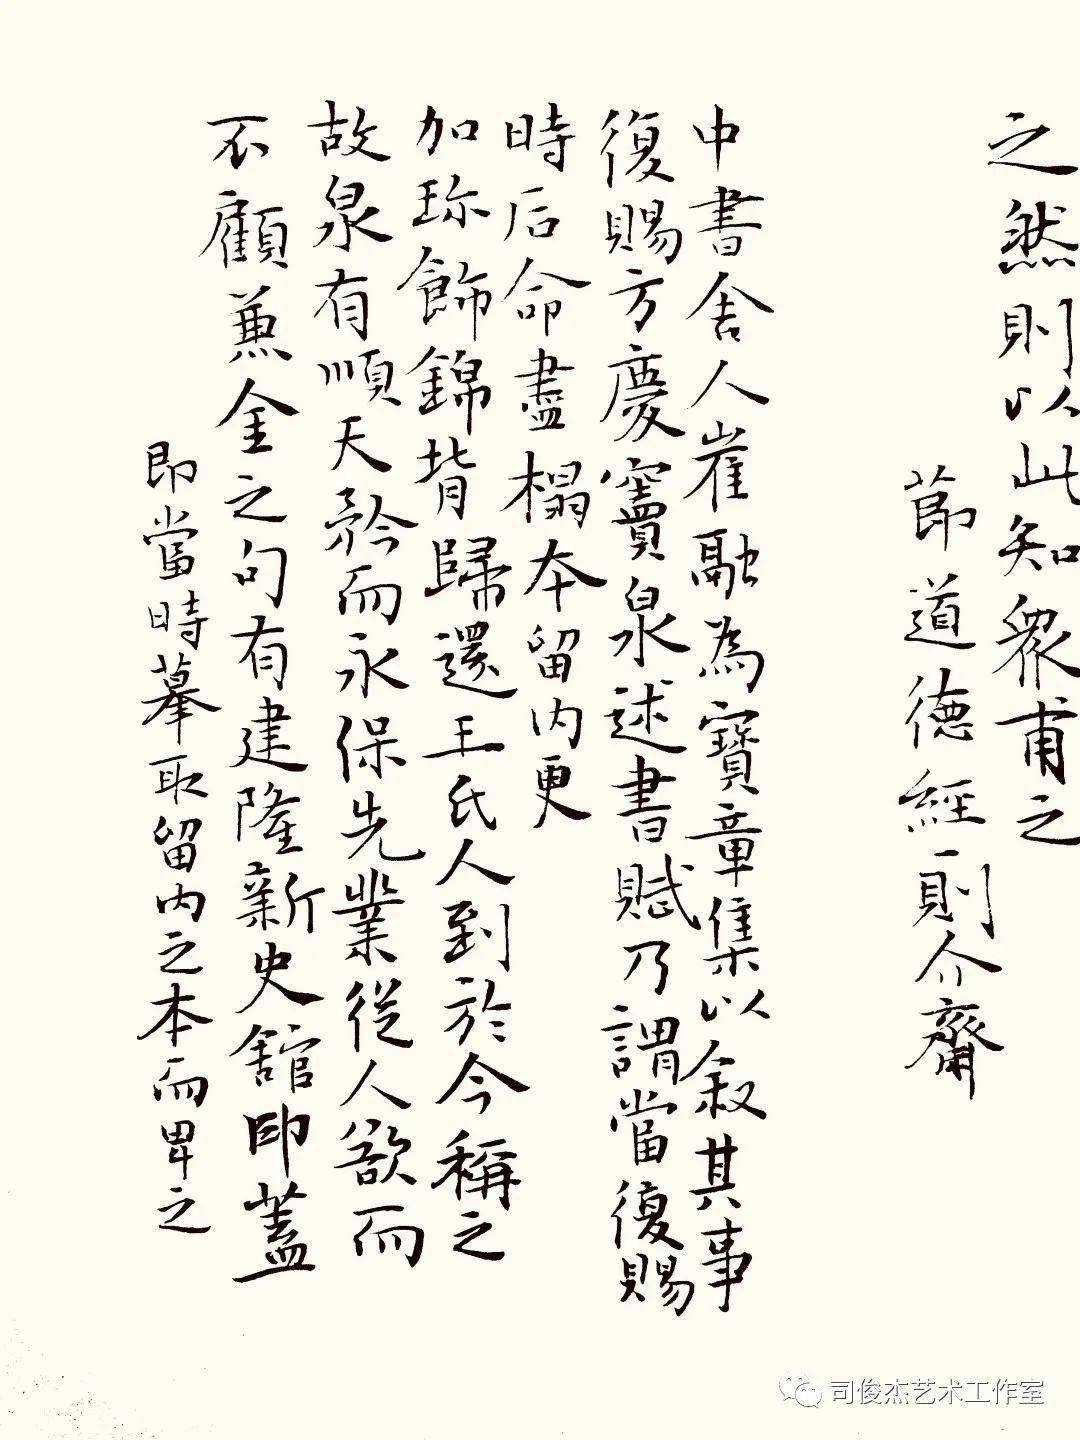 之然則以此知衆甫之
節道德經則介齋
中書舍人崔融為寶章集以叙其事
復賜方慶竇泉述書賦乃謂當復賜
時后命盡榻本留内更
加珎飾錦背歸還王氏人到於今稱之
故泉有順天矜而永保先業從人欲而
不顧兼金之句有建隆新史舘印蓋
即當時摹取留内之本而卑之
司俊杰艺术工作室